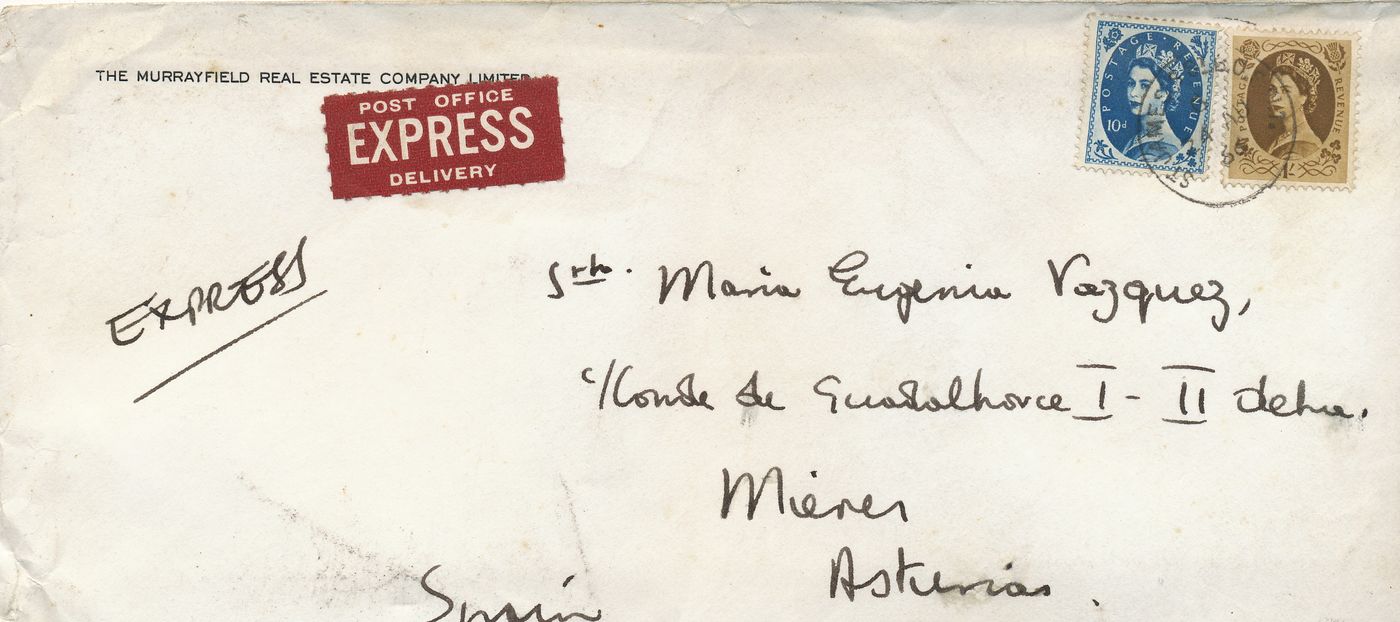 THE MURRAYFIELD REAL ESTATE COMPANY LIMITED
POST OFFICE
EXPRESS
DELIVERY
POSTAGE REVENUE
10d
POSTAGE REVENUE
1/-
EXPRESS
Srta. Maria Eugenia Vazquez,
c/Conde de Guadalhorce I - II dcha.
Mieres
Asturias.
Spain